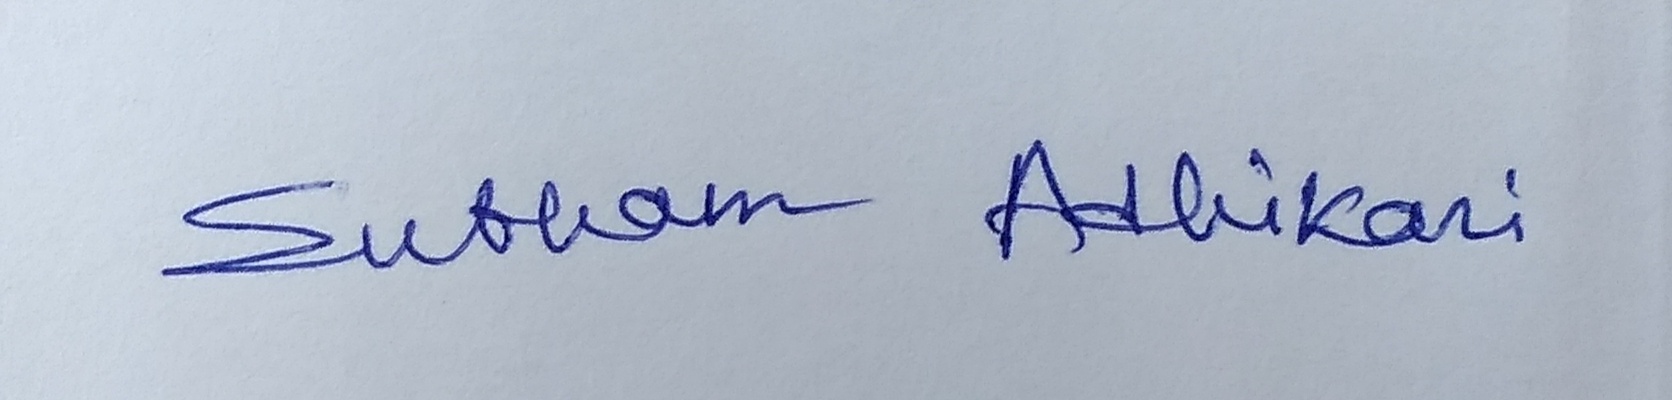 Subham Adhikari